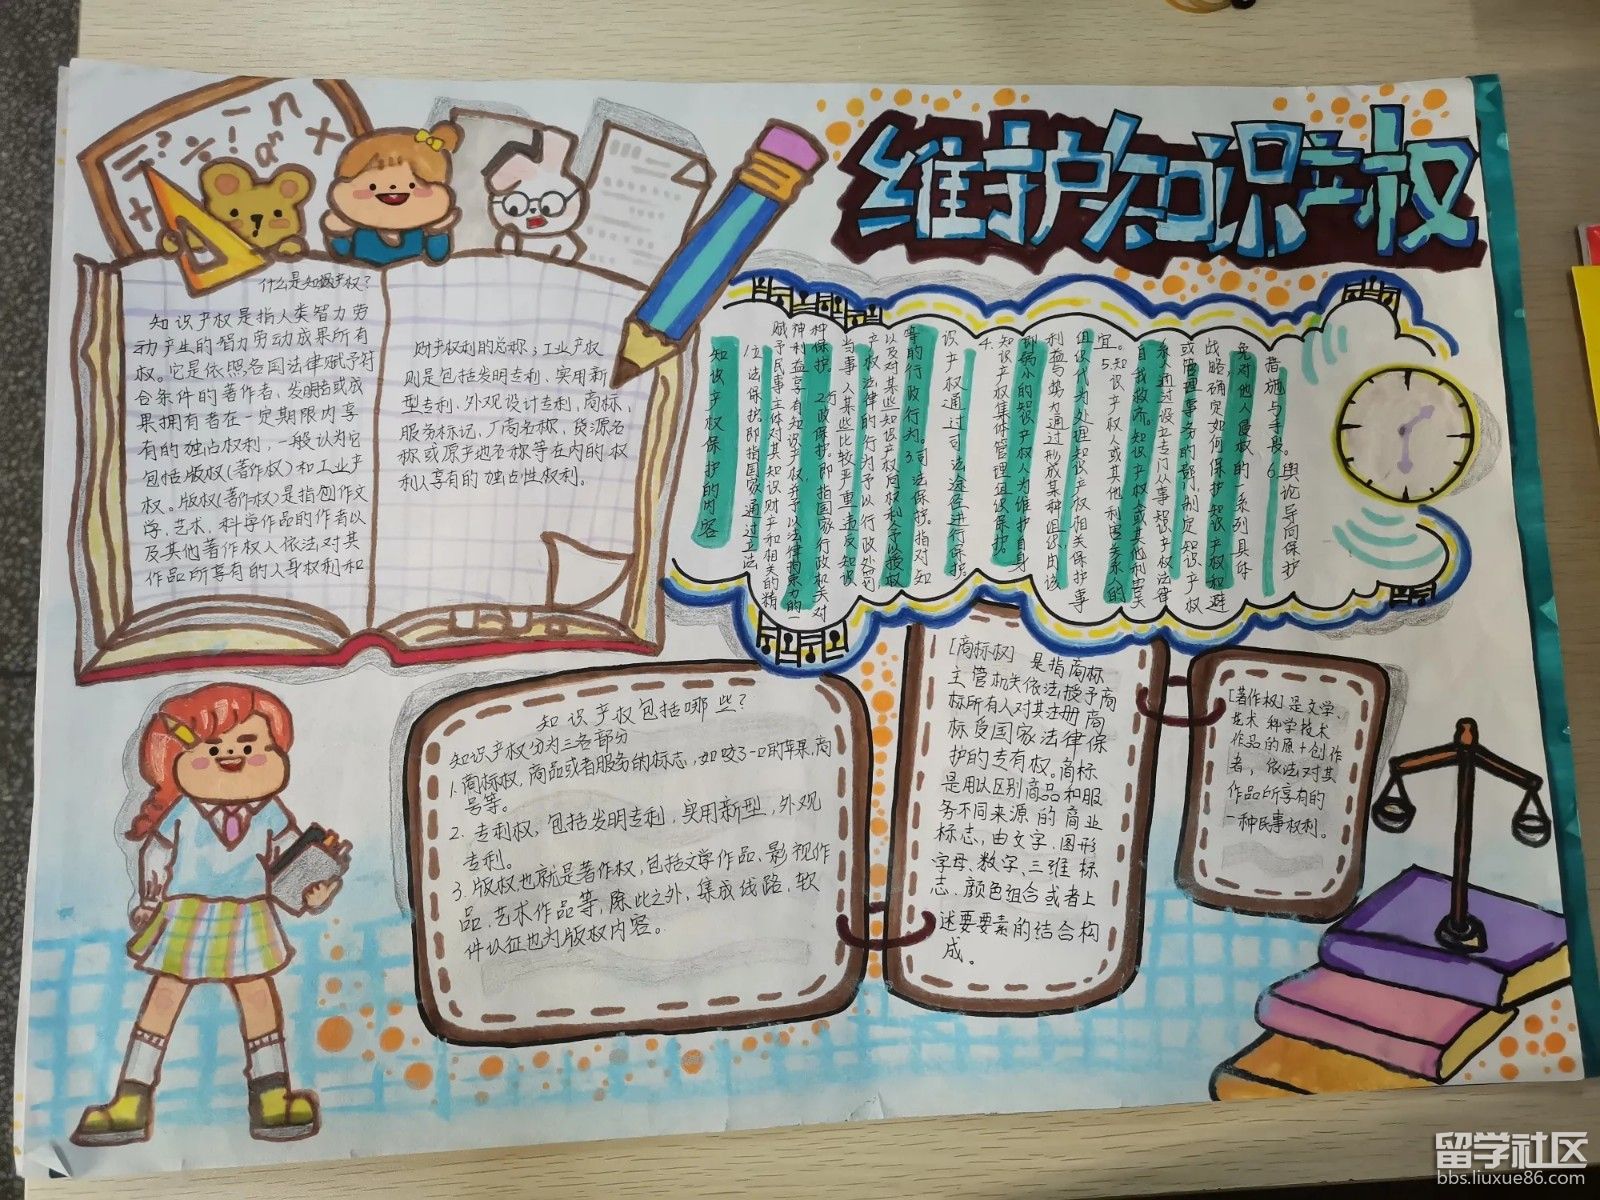 维护知识产权
什么是知识产权?
知识产权是指人类智力劳
动产生的智力劳动成果所有
权。它是依照各国法律赋予符
合条件的著作者、发明者或成
果拥有者在一定期限内享
有的独占权利，一般认为它
包括版权(著作权)和工业产
权。版权(著作权)是指创作文
学、艺术、科学作品的作者以
及其他著作权人依法对其
作品所享有的人身权利和
财产权利的总称；工业产权
则是包括发明专利、实用新
型专利、外观设计专利、商标、
服务标记、厂商名称、货源名
称或原产地名称等在内的权
利人享有的独占性权利。
知识产权保护的内容
1.立法保护。即指国家通过立法
赋予民事主体对其知识财产和相关的精
神利益享有知识产权，并予以法律拘束力的一
种保护。2.行政保护。即指国家行政机关对
当事人某些比较严重违反知识
产权法律的行为予以行政处罚
以及对某些知识产权向权利人予以授权
等的行政行为。3.司法保护。指对知
识产权通过司法途径进行保护。
4.知识产权集体管理组织保护。
即弱小的知识产权人为维护自身
利益与势力通过形成某种组织，由该
组织代为处理知识产权相关保护事
宜。5.知识产权人或其他利害关系人的
自我救济。知识产权人或其他利害关
系人通过设立专门从事知识产权法律
或管理事务的部门，制定知识产权
战略，确定如何保护知识产权和避
免对他人侵权的一系列具体
措施与手段。6.舆论导向保护
知识产权包括哪些?
知识产权分为三各部分
1.商标权，商品或者服务的标志，如咬了一口的苹果，商
号等。
2.专利权，包括发明专利，实用新型，外观
专利。
3.版权也就是著作权，包括文学作品、影视作
品、艺术作品等，除此之外，集成线路，软
件认证也为版权内容。
[商标权] 是指商标
主管机关依法授予商
标所有人对其注册商
标受国家法律保
护的专有权。商标
是用以区别商品和服
务不同来源的商业
标志，由文字、图形
字母、数字、三维标
志、颜色组合或者上
述要要素的结合构
成。
[著作权]是文学、
艺术 科学技术
作品的原十创作
者，依法对其
作品所享有的
一种民事权利。
留学社区
bbs.liuxue86.com